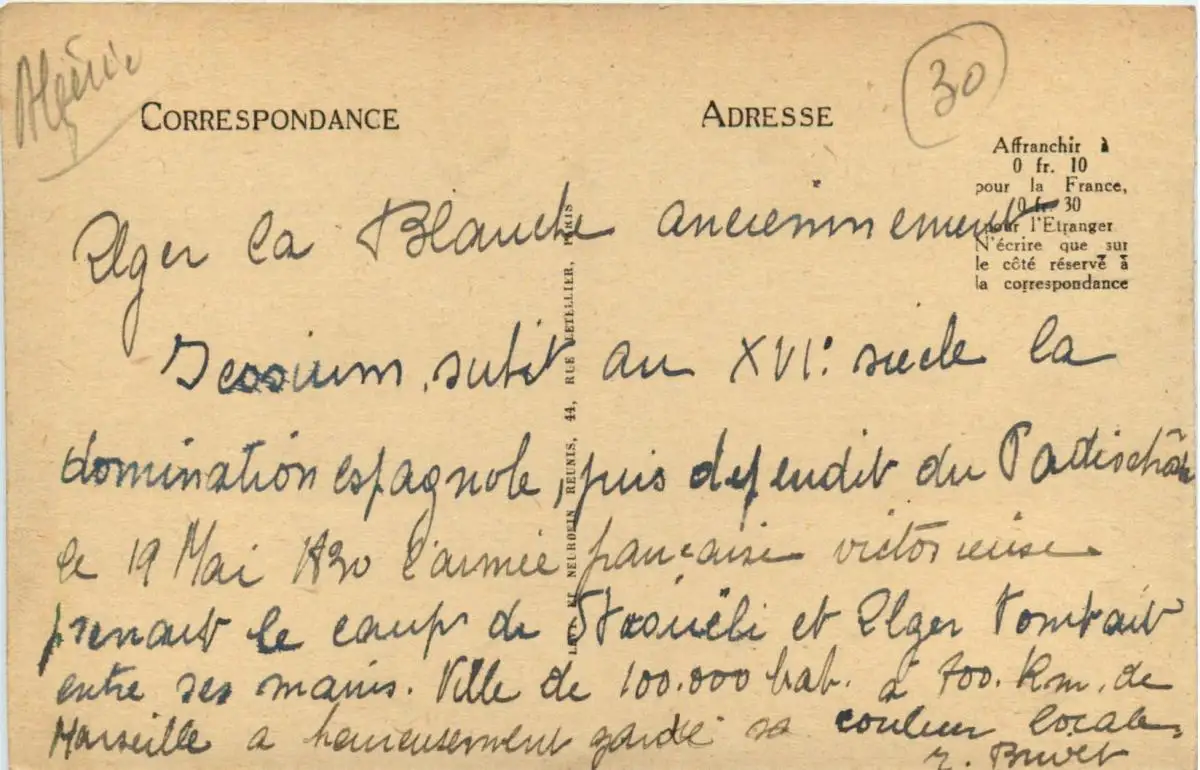 Algérie
30
CORRESPONDANCE
ADRESSE
Affranchir à
0 fr. 10
pour la France,
0 fr. 30
pour l'Etranger
N'écrire que sur
le côté réservé à
la correspondance
NEURDEIN REUNIS, 44, RUE LETELLIER, PARIS
Alger la Blanche anciennement
subit au XVIe siècle la
domination espagnole, puis dependit du Padischah
le 19 Mai 1830 l'armée française victorieuse
prenait le camp de Staouëli et Alger tombait
entre ses mains. Ville de 100.000 hab. à 700. Km. de
Marseille a heureusement gardé sa couleur locale